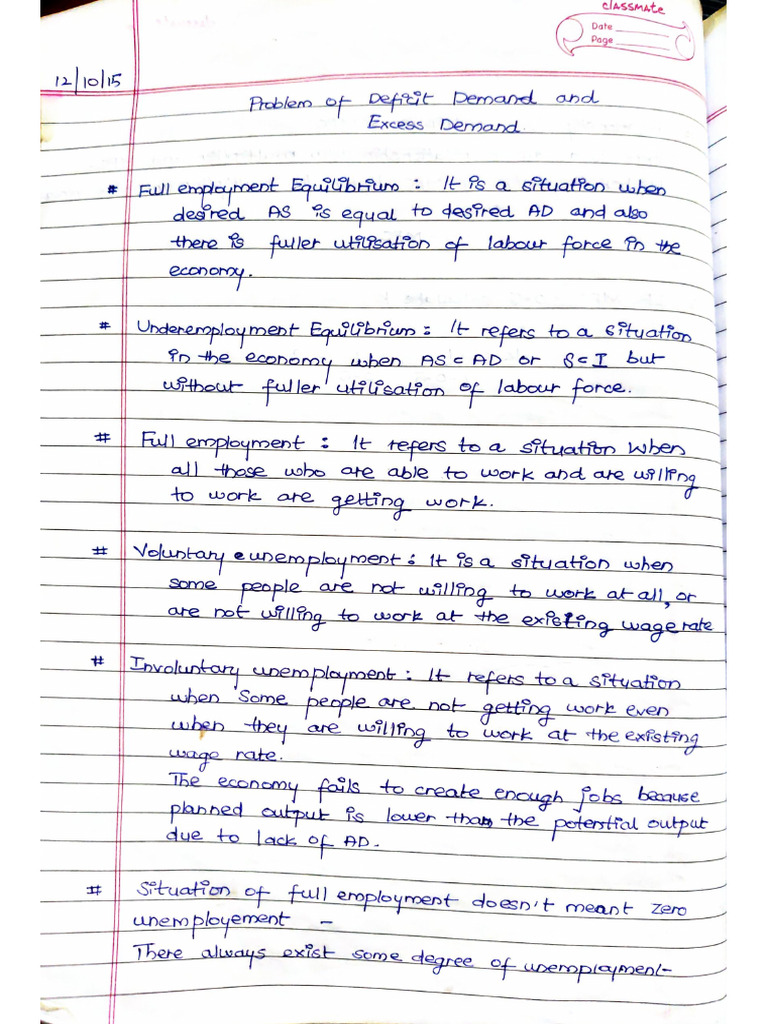 classmate
Date
Page
12/10/15
Problem of Deficit Demand and
Excess Demand.
# Full employment Equilibrium : It is a situation when
desired AS is equal to desired AD and also
there is fuller utilisation of labour force in the
economy.
# Underemployment Equilibrium : It refers to a situation
in the economy when AS = AD or S = I but
without fuller utilisation of labour force.
# Full employment : It refers to a situation when
all those who are able to work and are willing
to work are getting work.
# Voluntary unemployment : It is a situation when
some people are not willing to work at all, or
are not willing to work at the existing wage rate
# Involuntary unemployment : It refers to a situation
when some people are not getting work even
when they are willing to work at the existing
wage rate.
The economy fails to create enough jobs because
planned output is lower than the potential output
due to lack of AD.
# Situation of full employment doesn't meant zero
unemployement -
There always exist some degree of unemployment-